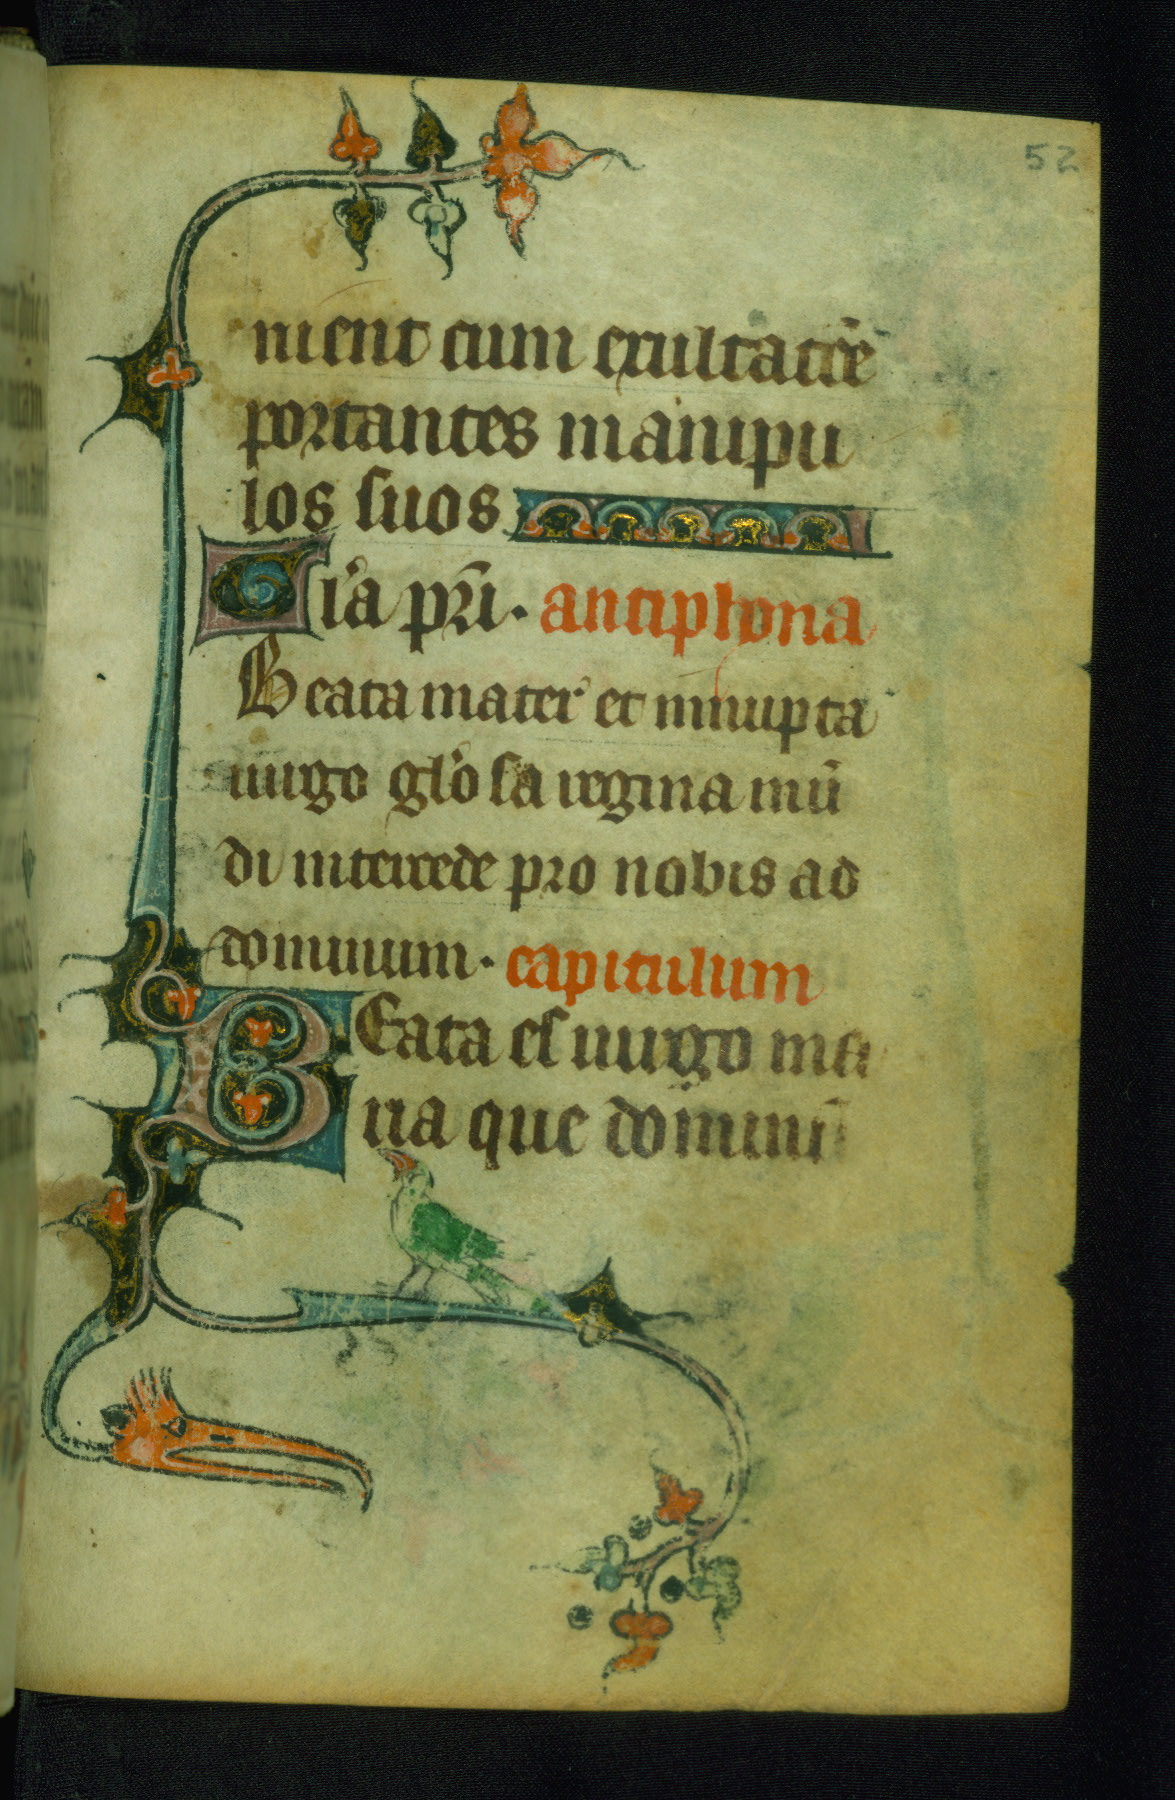 52
nient cum exultatōe
portantes manipu
los suos
Glīa pr̄i. antiphona
Beata mater et innupta
uirgo glōsa regina mū
di intercede pro nobis ad
dominum. capitulum
BEata es uirgo ma
ria que dominū